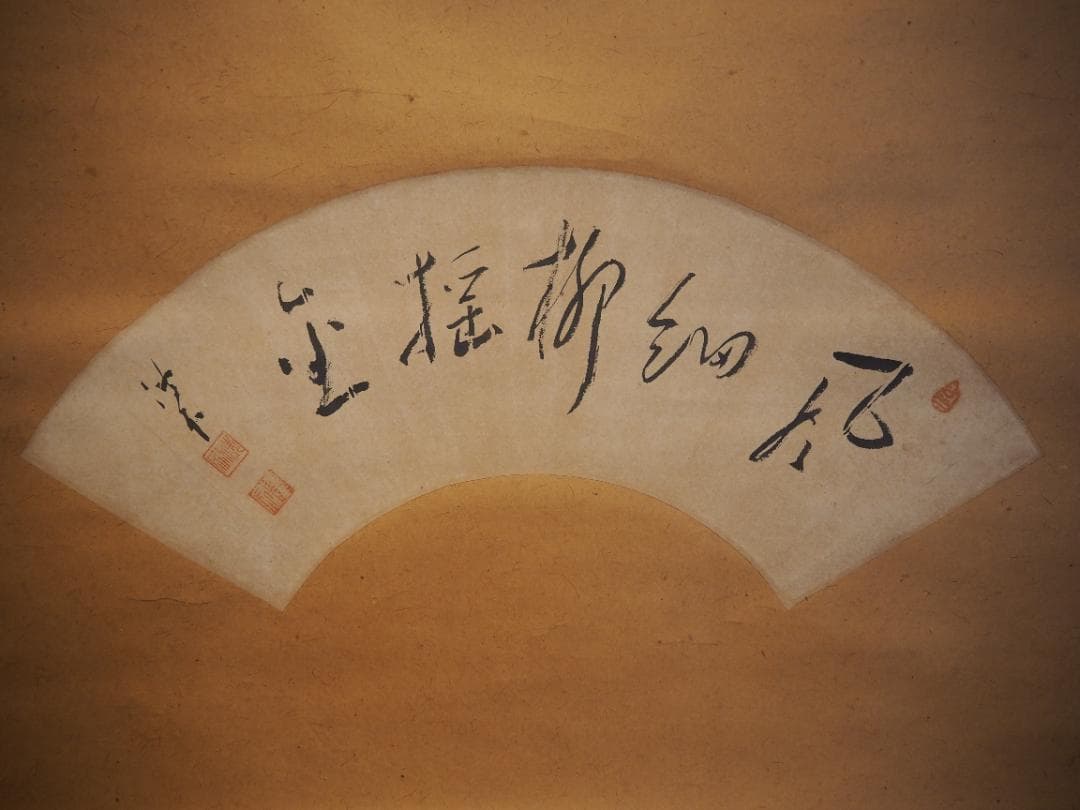 風細柳搖金